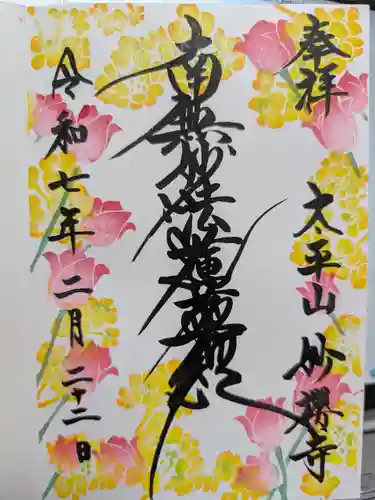 奉拝
太平山妙櫻寺
南無妙法蓮華経
令和七年二月二十二日